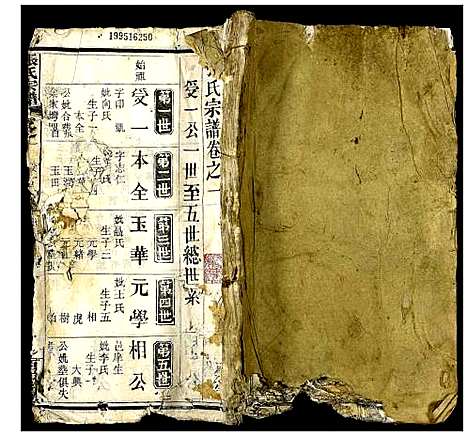 199516250
氏宗譜卷之一
受一公一世至五世總世系
始祖
第一世
受一
字印凱
妣向氏
生子一
本全
公妣合葬
第二世
本全
字志仁
生子
玉
玉
第三世
玉華
妣聶氏
生子二
元學
元緒
第四世
元學
妣王氏
生子五
相
虎
樹
第五世
相公
邑庠生
妣李氏
生子一
大興
公妣墓俱失
氏宗譜